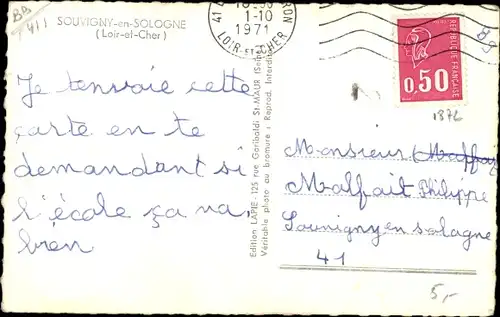 BB
411
SOUVIGNY-en-SOLOGNE
(Loir-et-Cher)
1-10
1971
LOIR-ET-CHER
REPUBLIQUE FRANÇAISE
0,50
BB
1876
Je t'envoie cette
carte en te
demandant si
l'école ça va
bien
Edition LAPIE - 125 rue Garibaldi St-MAUR (Seine)
Véritable photo au bromure : Reprod. Interdite
Monsieur
Malfait Philippe
Souvigny en sologne
41
5,-